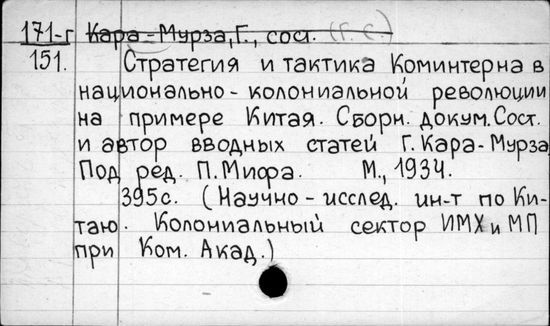 171-г Кара-Мурза, Г., сост. (Г. С.)
151. Стратегия и тактика Коминтерна в
национально-колониальной революции
на примере Китая. Сборн. докум. Сост.
и автор вводных статей Г. Кара-Мурза
Под ред. П. Мифа. М., 1934.
395с. (Научно-исслед. ин-т по Ки-
таю. Колониальный сектор ИМХ и МП
при Ком. Акад.)